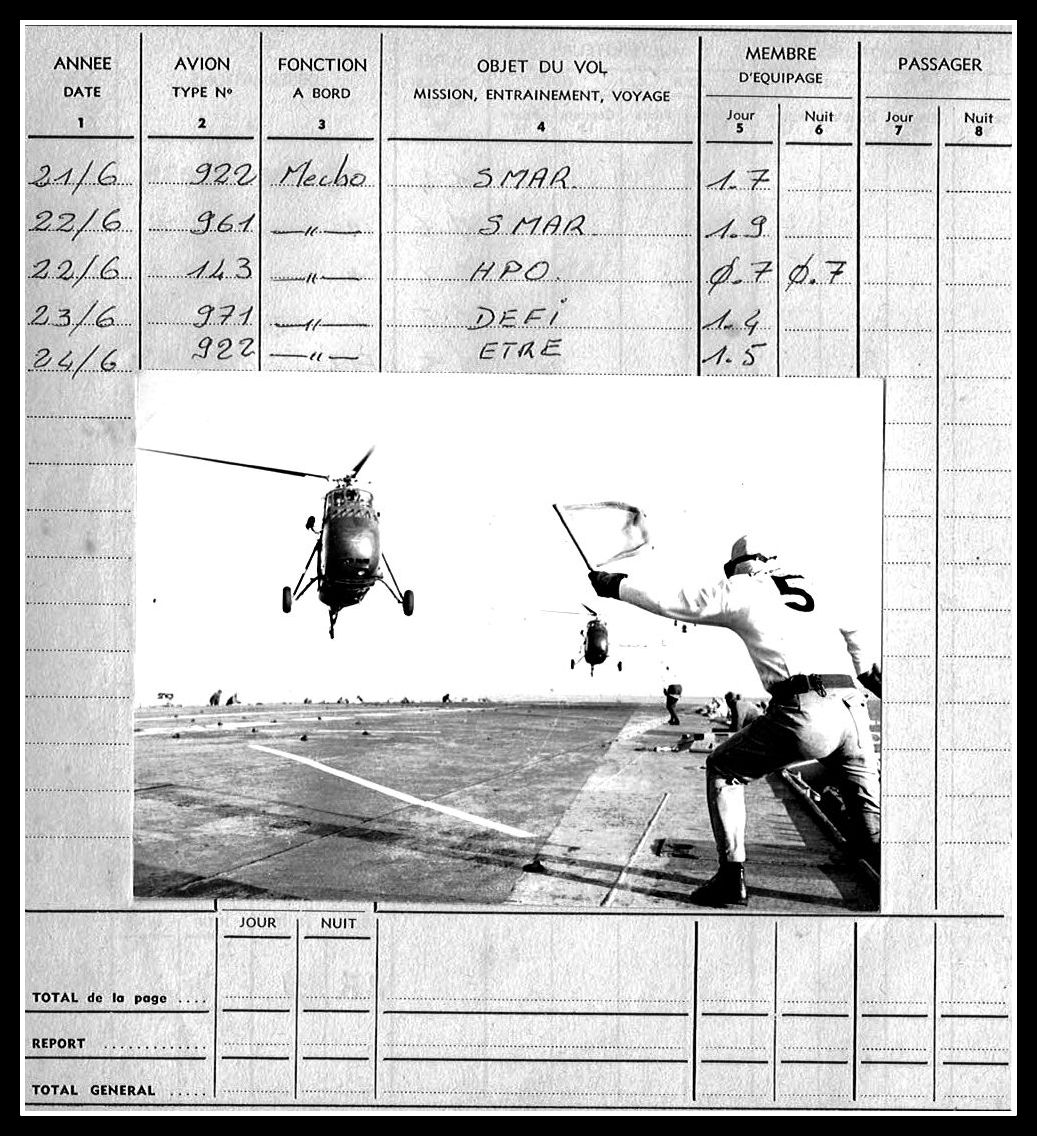 ANNEE AVION FONCTION OBJET DU VOL MEMBRE D'EQUIPAGE PASSAGER
DATE TYPE Nº A BORD MISSION, ENTRAINEMENT, VOYAGE Jour Nuit Jour Nuit
1 2 3 4 5 6 7 8
21/6 922 Mecbo SMAR. 1.7
22/6 961 —〃— SMAR 1.9
22/6 143 —〃— HPO. Ø.7 Ø.7
23/6 971 —〃— DEFi 1.4
24/6 922 —〃— ETRE 1.5
5
JOUR NUIT
TOTAL de la page ....
REPORT ............
TOTAL GENERAL .....